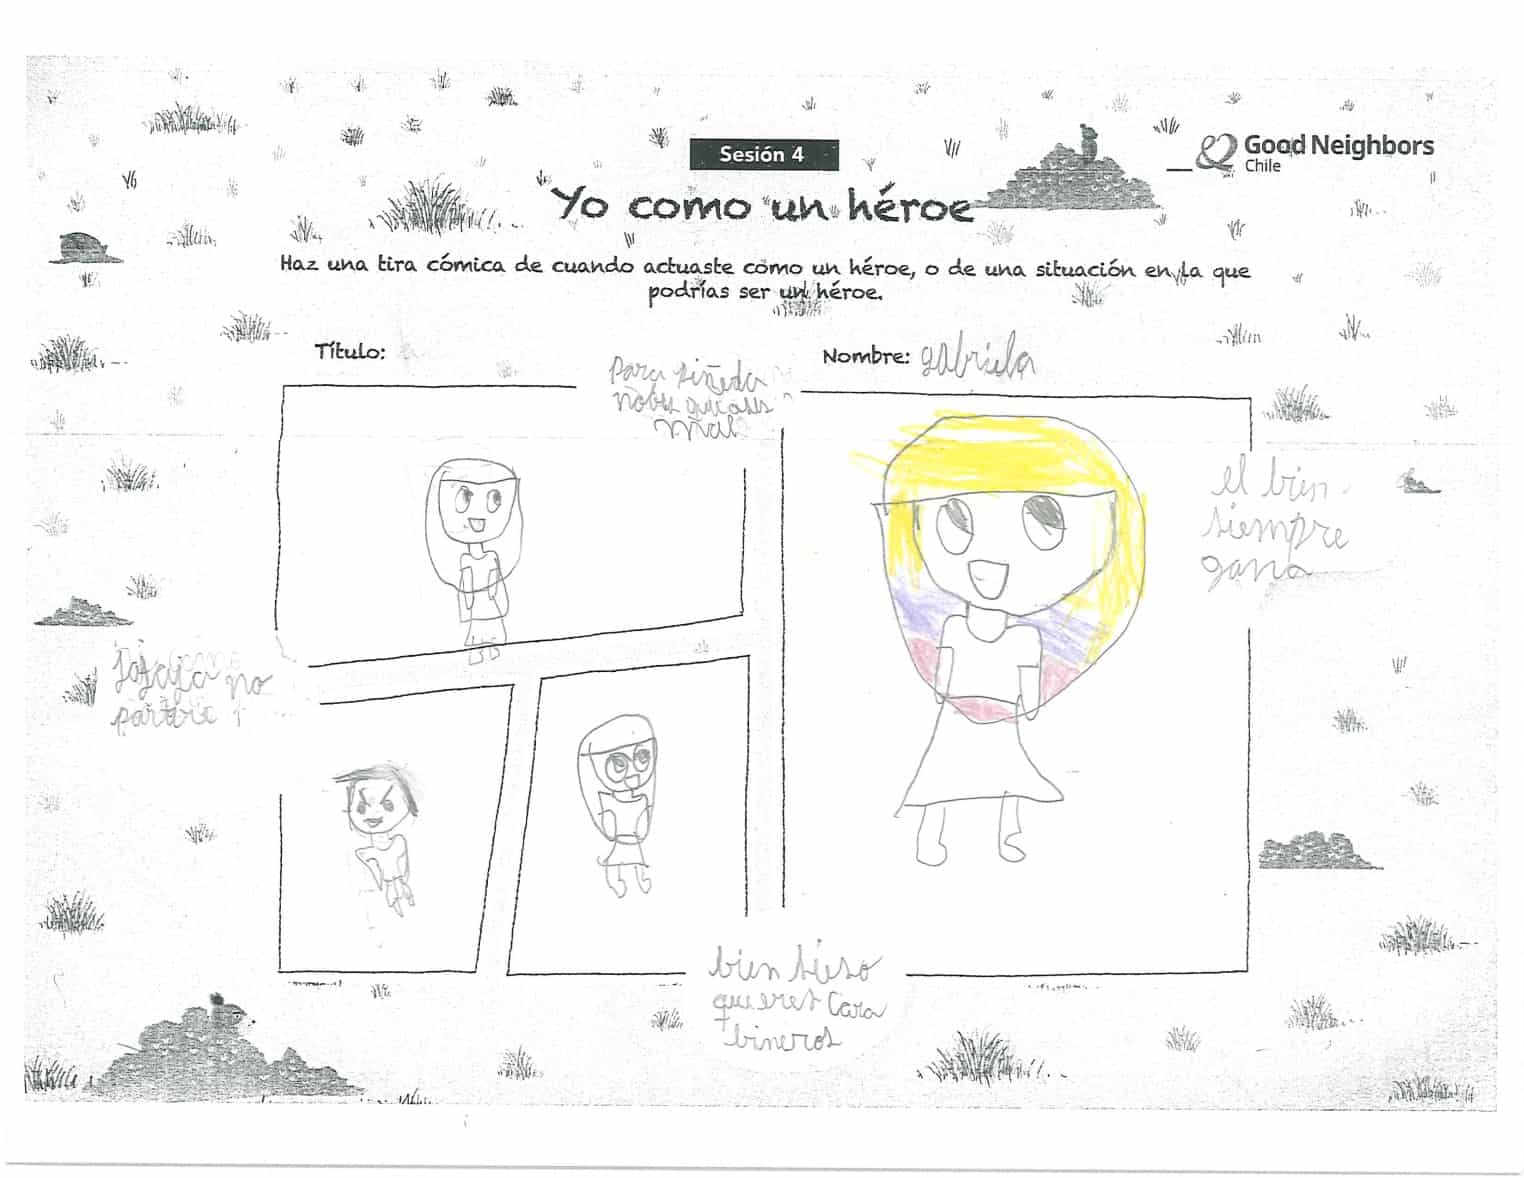 Sesión 4
Good Neighbors
Chile
Yo como un héroe
Haz una tira cómica de cuando actuaste como un héroe, o de una situación en la que
podrías ser un héroe.
Título:
Nombre: gabriela
Para
mal
el bien
siempre
gana
no
bien
quieres Cara
bineros